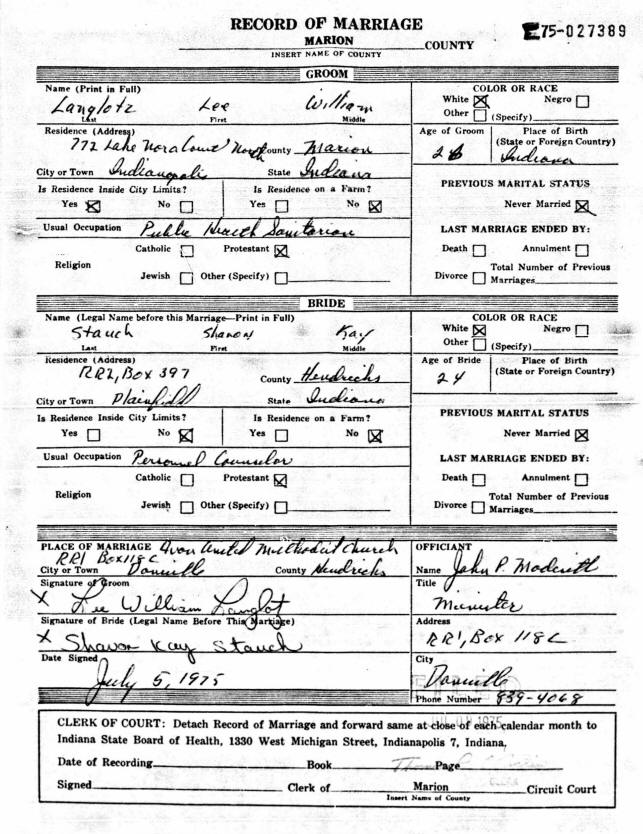 RECORD OF MARRIAGE
75-027389
MARION COUNTY
INSERT NAME OF COUNTY
GROOM
Name (Print in Full)
Langlotz Lee William
Last First Middle
COLOR OR RACE
White ☒ Negro ☐
Other ☐ (Specify)
Residence (Address)
772 Lake Nora Court North County Marion
Age of Groom Place of Birth
(State or Foreign Country)
Indiana
City or Town Indianapolis State Indiana
Is Residence Inside City Limits? Is Residence on a Farm?
Yes ☒ No ☐ Yes ☐ No ☒
PREVIOUS MARITAL STATUS
Never Married ☒
Usual Occupation Public Health Sanitarian
LAST MARRIAGE ENDED BY:
Religion
Catholic ☐ Protestant ☒
Jewish ☐ Other (Specify) ☐
Death ☐ Annulment ☐
Divorce ☐ Total Number of Previous
Marriages
BRIDE
Name (Legal Name before this Marriage—Print in Full)
Stauch Sharon Kay
Last First Middle
COLOR OR RACE
White ☒ Negro ☐
Other ☐ (Specify)
Residence (Address)
RR2, Box 397 County Hendricks
Age of Bride Place of Birth
24 (State or Foreign Country)
City or Town Plainfield State Indiana
Is Residence Inside City Limits? Is Residence on a Farm?
Yes ☐ No ☒ Yes ☐ No ☒
PREVIOUS MARITAL STATUS
Never Married ☒
Usual Occupation Personnel Counselor
LAST MARRIAGE ENDED BY:
Religion
Catholic ☐ Protestant ☒
Jewish ☐ Other (Specify) ☐
Death ☐ Annulment ☐
Divorce ☐ Total Number of Previous
Marriages
PLACE OF MARRIAGE Avon United Methodist Church
RR1 Box 118C
City or Town Danville County Hendricks
Signature of Groom
X Lee William Langlotz
Signature of Bride (Legal Name Before This Marriage)
X Sharon Kay Stauch
Date Signed
July 5, 1975
OFFICIANT
Name John P.
Title
Minister
Address
RR1, Box 118C
City
Danville
Phone Number 839-4068
CLERK OF COURT: Detach Record of Marriage and forward same at close of each calendar month to
Indiana State Board of Health, 1330 West Michigan Street, Indianapolis 7, Indiana.
Date of Recording Book Page
Signed Clerk of Marion Circuit Court
Insert Name of County